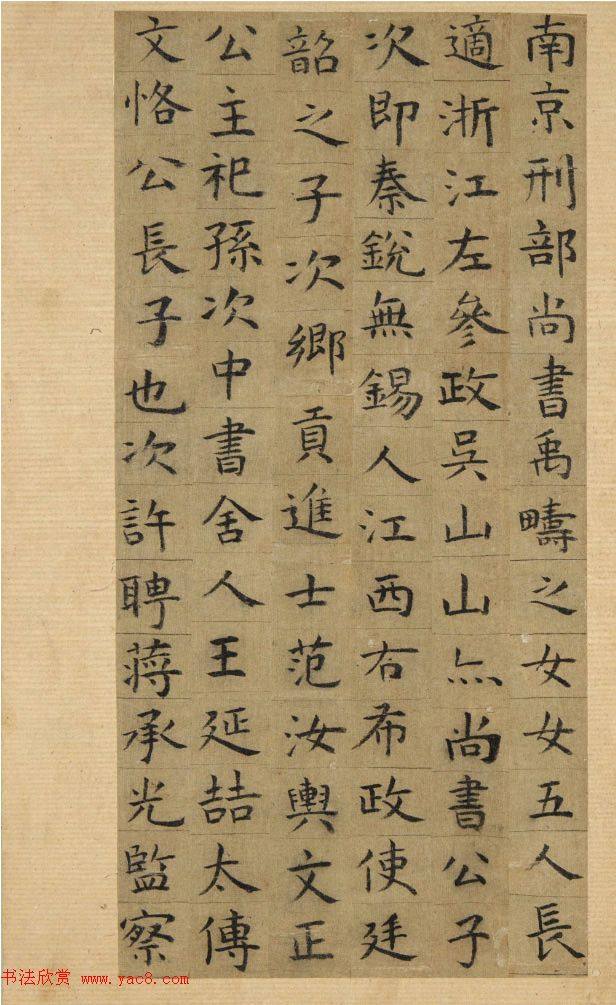 南京刑部尚書禹疇之女女五人長
適浙江左參政吳山山亦尚書公子
次即秦銳無錫人江西右布政使廷
韶之子次鄉貢進士范汝輿文正
公主祀孫次中書舍人王延喆太傅
文恪公長子也次許聘蔣承光監察
书法欣赏 www.yac8.com